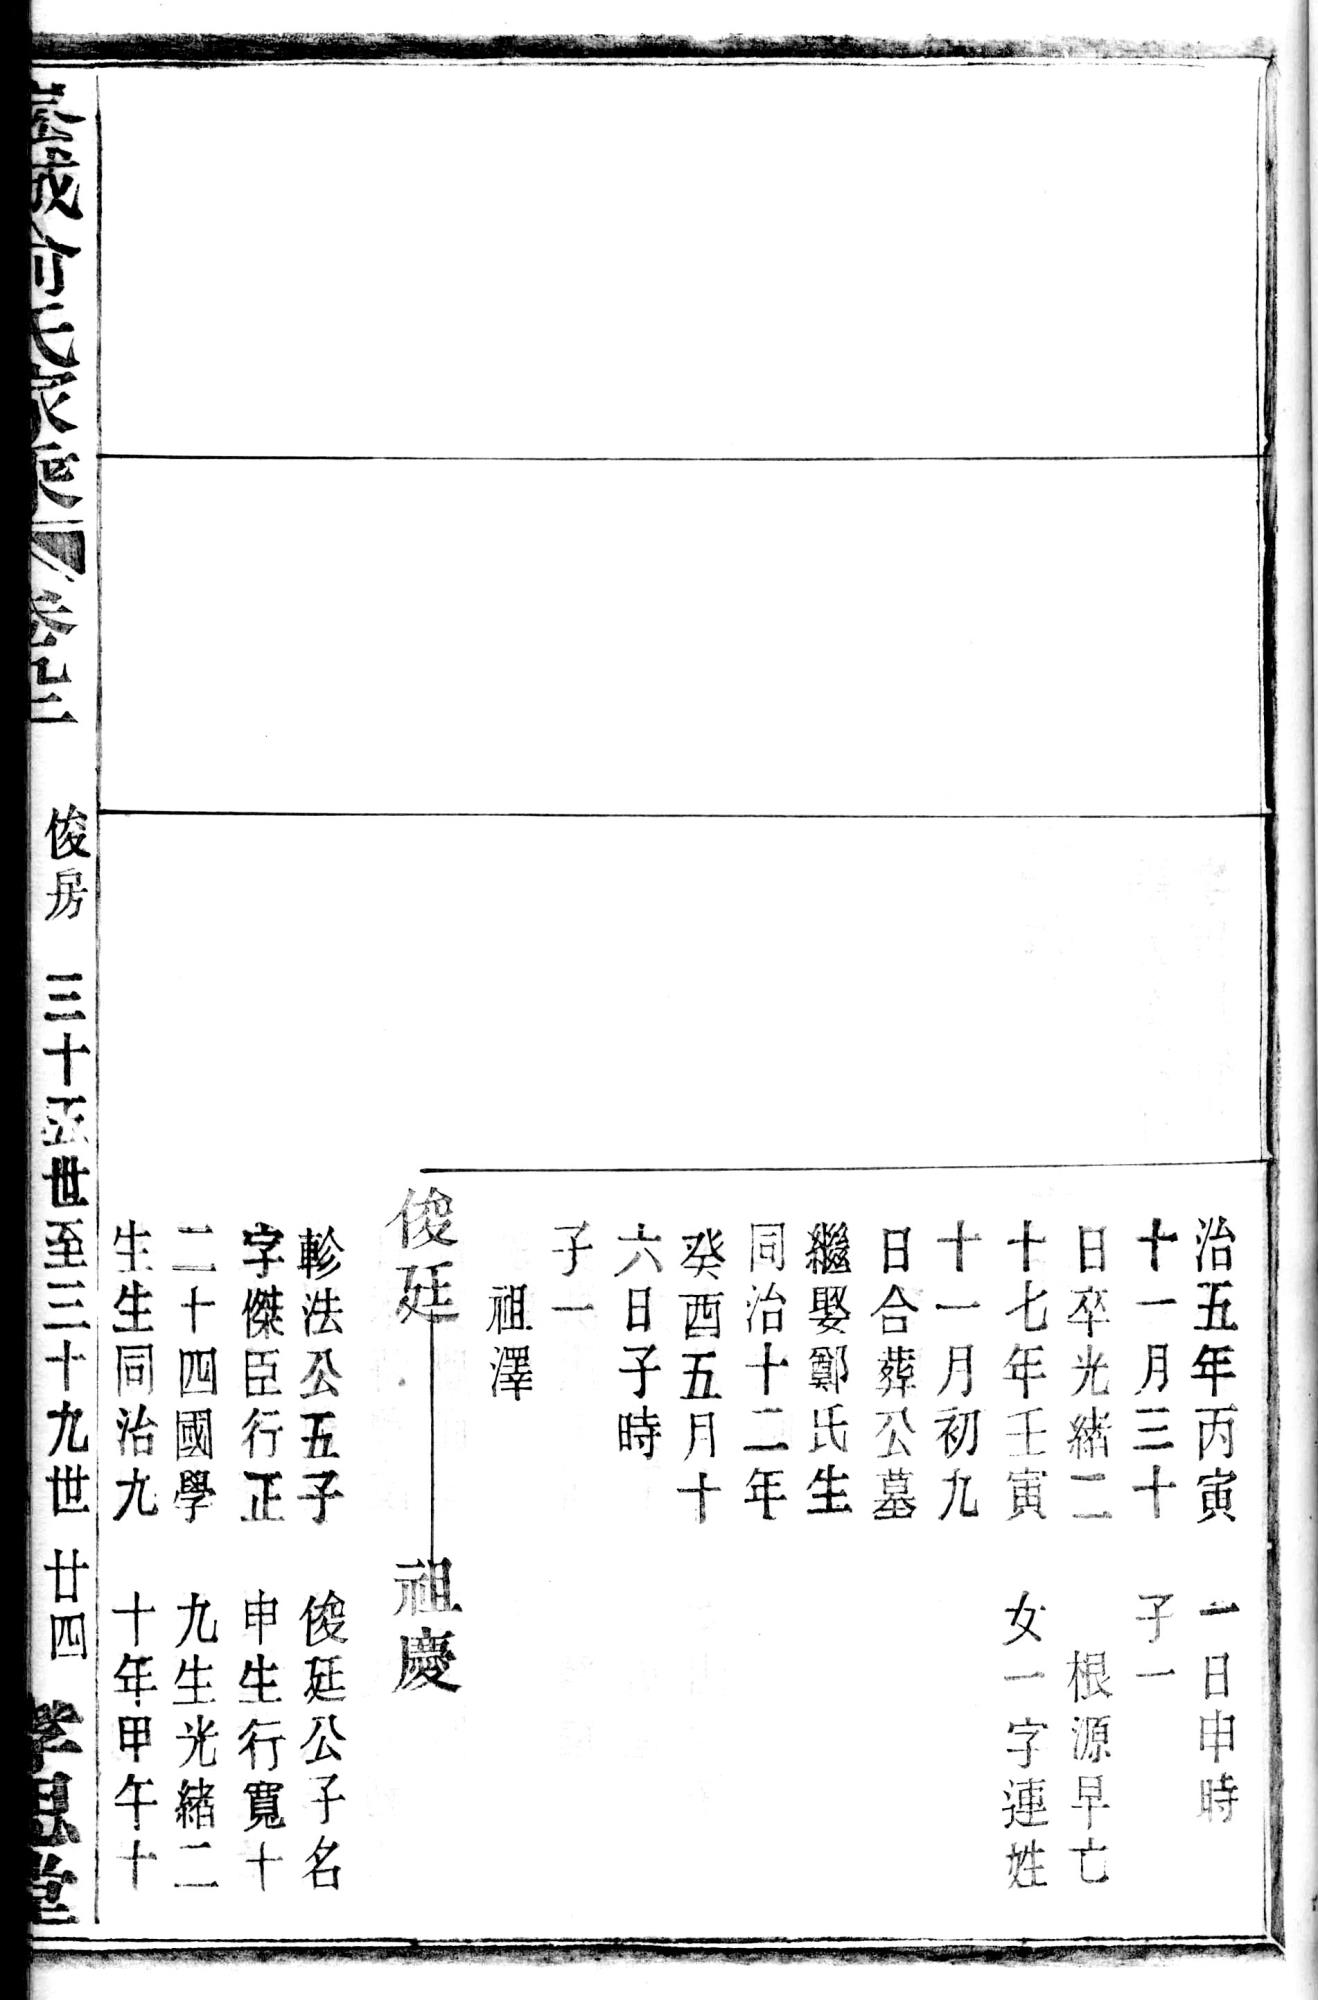 治五年丙寅
十一月三十
日卒光緒二
十七年壬寅
十一月初九
日合葬公墓
繼娶鄭氏生
同治十二年
癸酉五月十
六日子時
子一
祖澤
一日申時
子一
根源早亡
女一字連姓
俊廷
祖慶
軫法公五子
字傑臣行正
二十四國學
生生同治九
俊廷公子名
申生行寬十
九生光緒二
十年甲午十
城俞氏家乘
卷九二
俊房
三十五世至三十九世
廿四
孝思堂